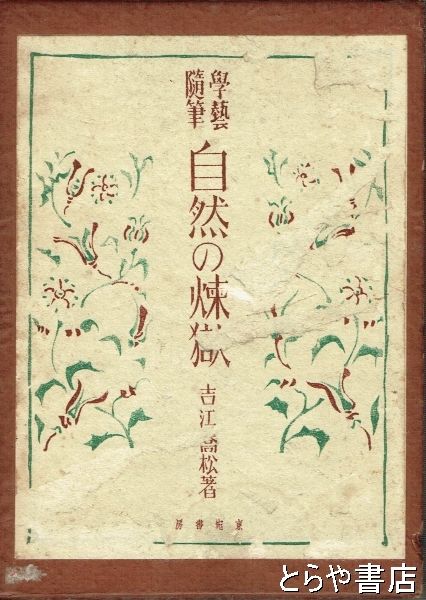 學藝
隨筆
自然の煉獄
吉江喬松著
房書宛東
とらや書店